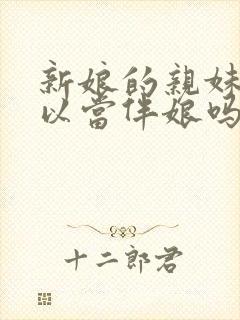 新娘的親妹
以當伴娘嗎
十二郎君